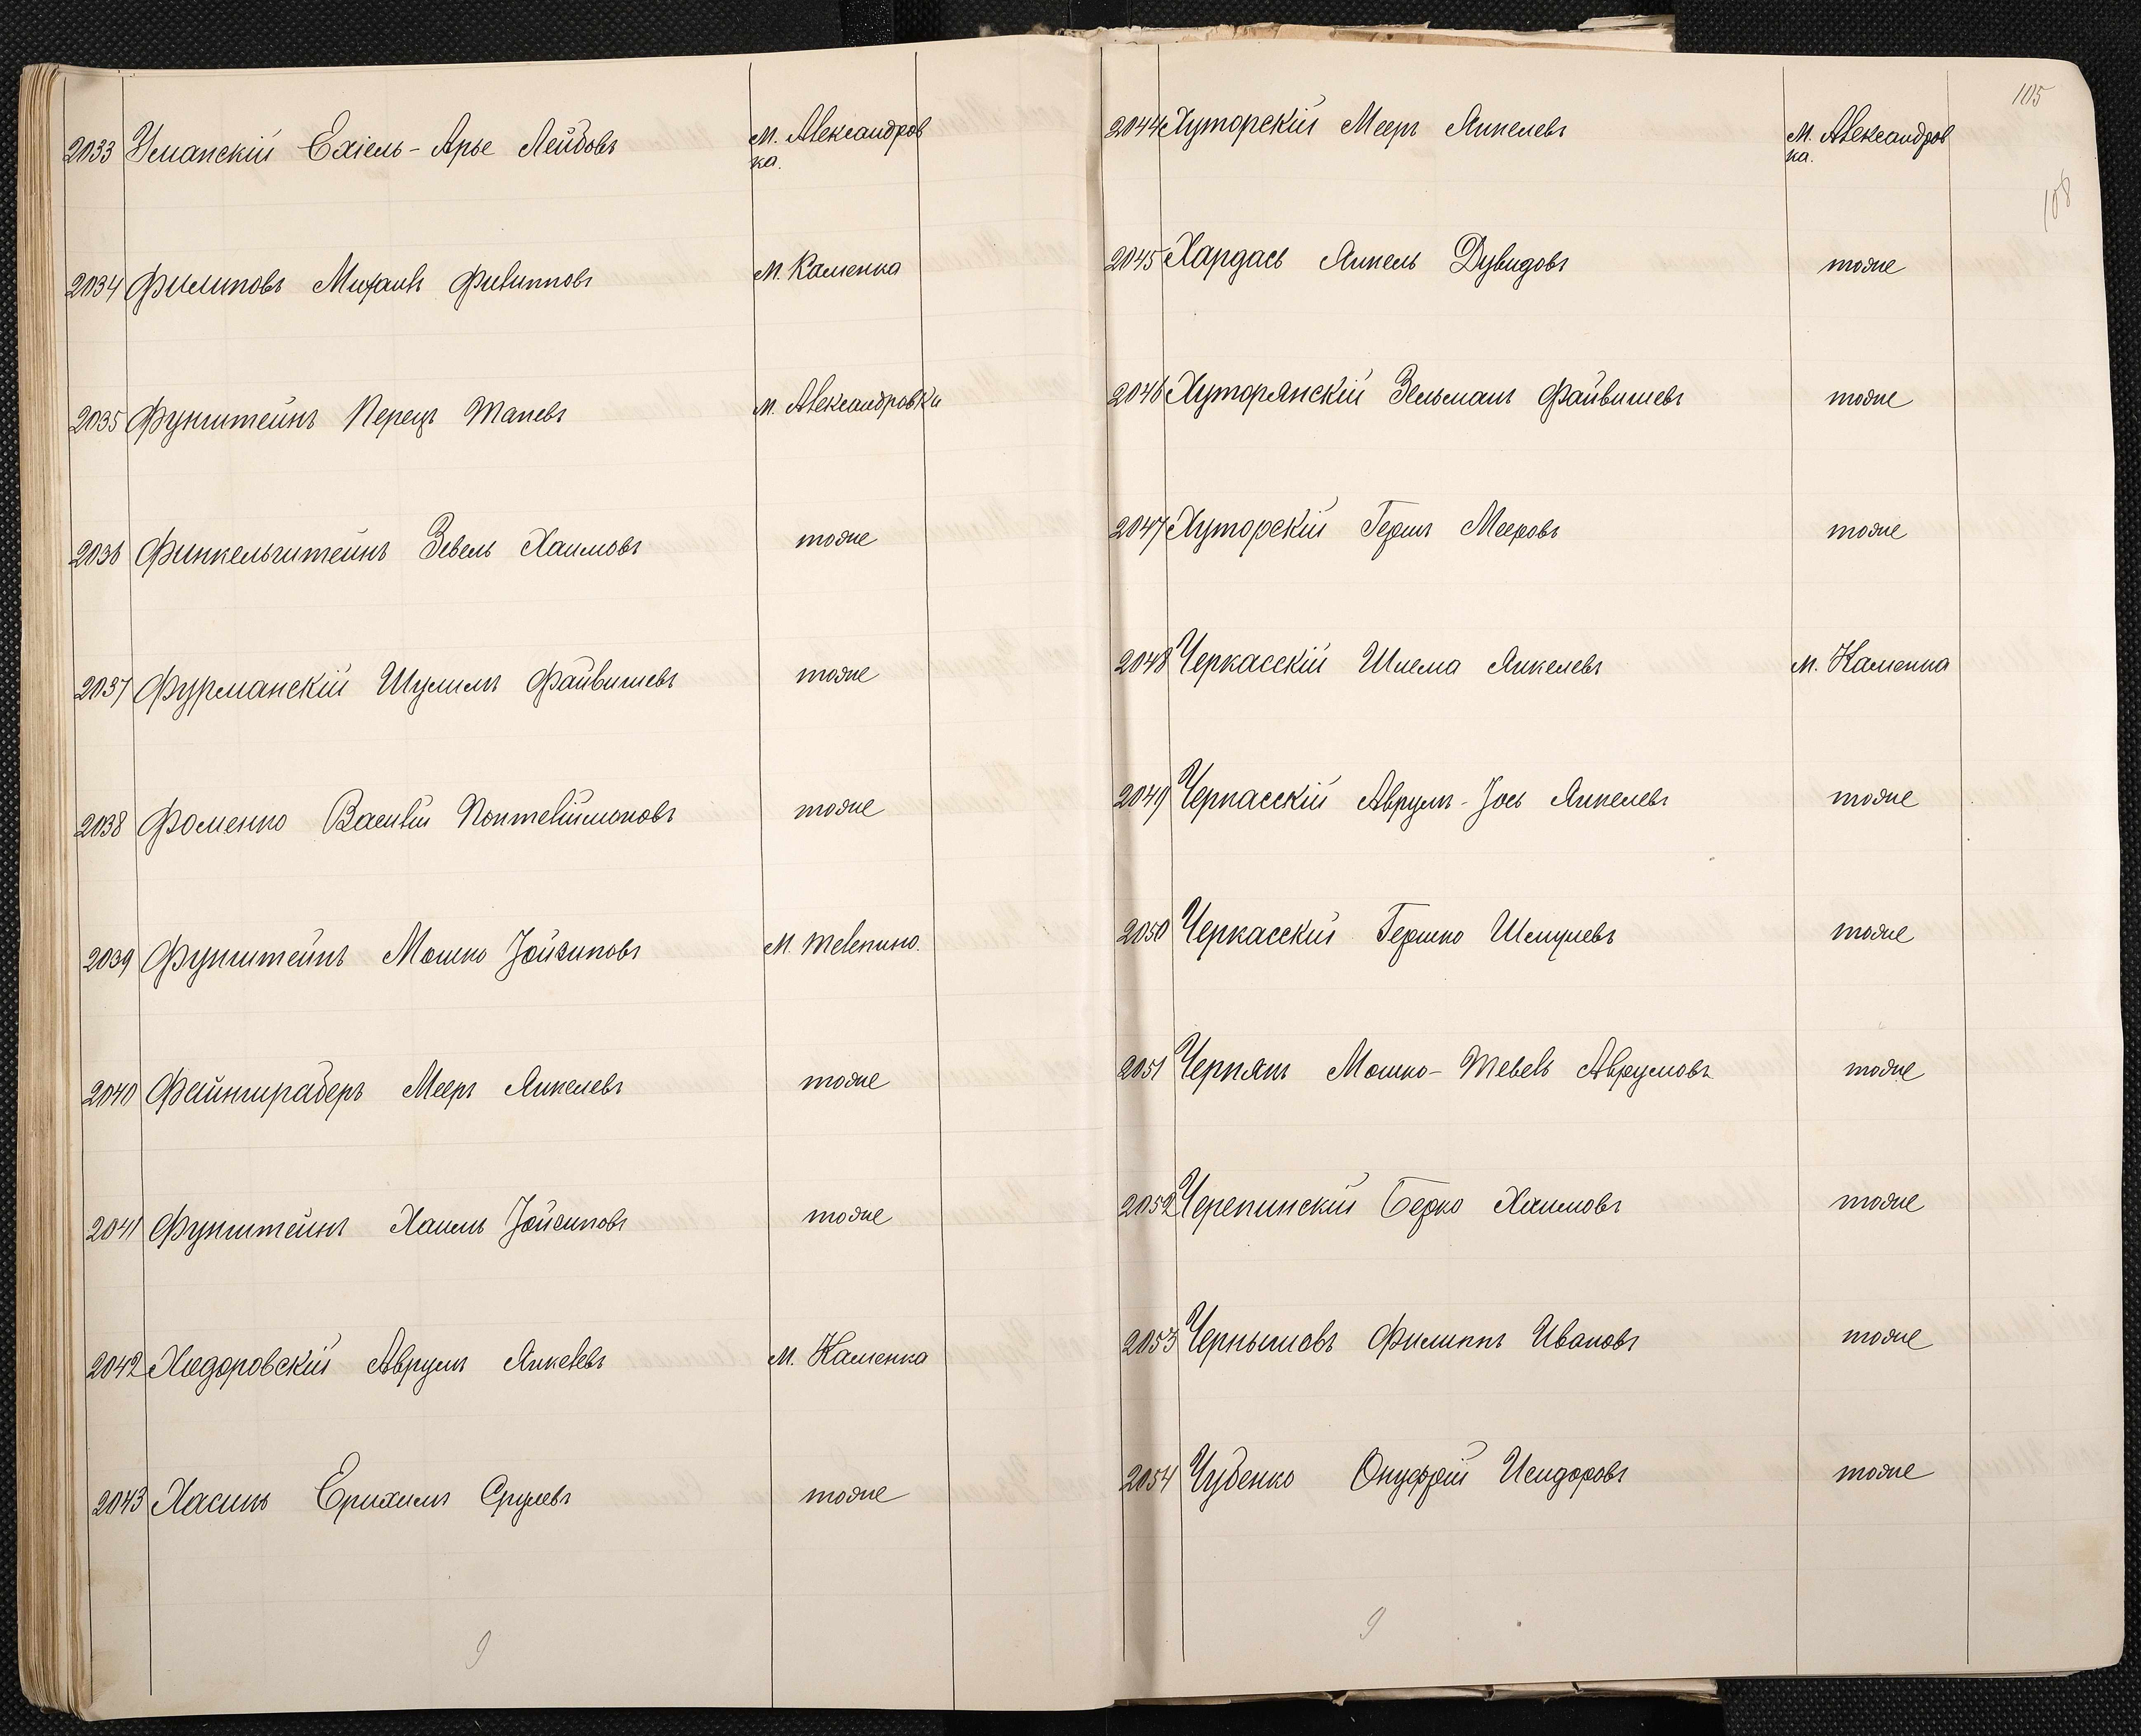 2033 Уманскій Ехіель-Арье Лейбовъ м. Александров
ка.
2034 Филиповъ Михаилъ Филипповъ м. Каменка
2035 Фунштейнъ Перецъ Мотелевъ м. Александровка
2036 Финкельштейнъ Зевель Хаимовъ тоже
2037 Фурманскій Шулимъ Файвишевъ тоже
2038 Фоменко Василій Понтелиймоновъ тоже
2039 Фунштейнъ Мошко Іойсиповъ м. Телепино.
2040 Файншрадеръ Мееръ Янкелевъ тоже
2041 Фунштейнъ Хаимъ Іойсиповъ тоже
2042 Ходоровскій Аврумъ Янкелевъ м. Каменка
2043 Хасинъ Ерихимъ Срулевъ тоже
9
105
108
2044 Хуторскій Мееръ Янкелевъ м. Александров
ка.
2045 Хардасъ Янкель Дувидовъ тоже
2046 Хуторянскій Зельманъ Файвишевъ тоже
2047 Хуторскій Гершъ Мееровъ тоже
2048 Черкасскій Шлема Янкелевъ м. Каменка
2049 Черкасскій Аврумъ-Іось Янкелевъ тоже
2050 Черкасскій Гершко Шмулевъ тоже
2051 Чернякъ Мошко-Тевель Аврумовъ тоже
2052 Черепинскій Берко Хаимовъ тоже
2053 Чернышовъ Филиппъ Ивановъ тоже
2054 Чубенко Онуфрій Исидоровъ тоже
9